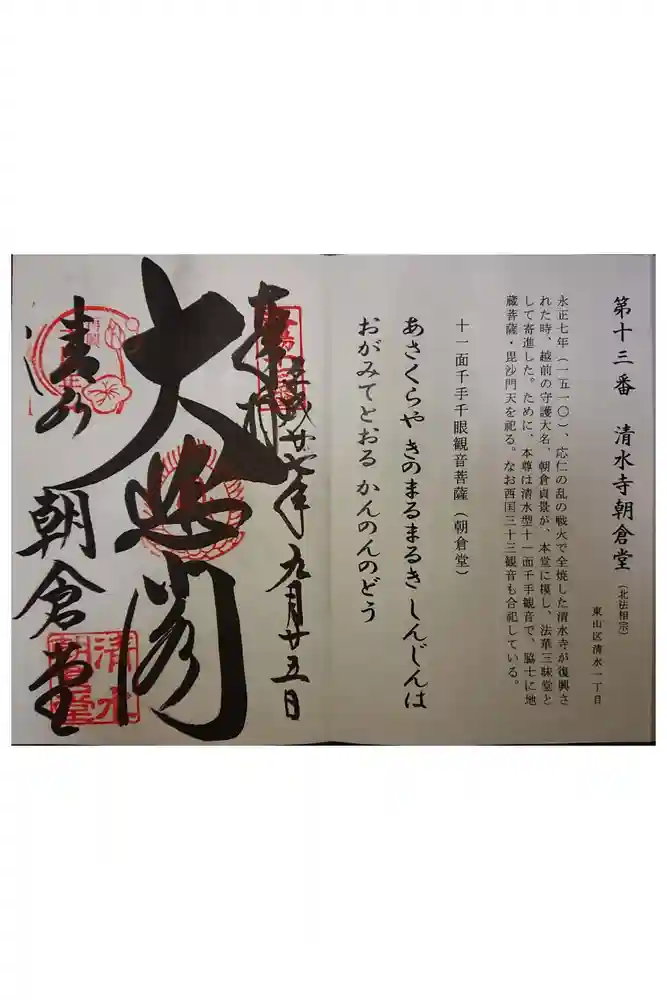 第十三番 清水寺朝倉堂 (北法相宗)
東山区清水一丁目
永正七年(一五一〇)、応仁の乱の戦火で全焼した清水寺が復興さ
れた時、越前の守護大名、朝倉貞景が、本堂に模し、法華三昧堂と
して寄進した。ために、本尊は清水型十一面千手観音で、脇士に地
蔵菩薩・毘沙門天を祀る。なお西国三十三観音も合祀している。
十一面千手千眼観音菩薩(朝倉堂)
あさくらや きのまるまるき しんじんは
おがみてとおる かんのんのどう
奉拝
平成廿七年九月廿五日
大悲閣
清水
朝倉堂
清水
朝倉堂